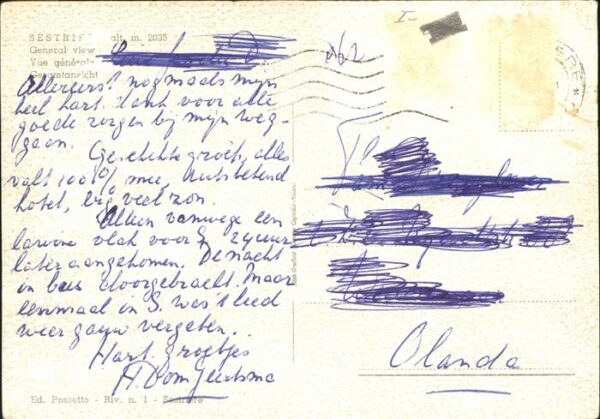 SESTRIERE alt. m. 2035
General view
Vue générale
Gesamtansicht
Allereerst nogmaals mijn
heel hart. dank voor alle
goede zorgen bij mijn weg-
gaan.
Geschikte groep, alles
valt 100% mee, uitstekend
hotel, erg veel zon.
Alleen vanwege een
lawine vlak voor S. 24 uur
later aangekomen. De nacht
in bus doorgebracht. Maar
eenmaal in S. was 't leed
weer gauw vergeten..
Hart. groetjes
Olanda
Ed. Possetto - Riv. n. 1 - Sestriere